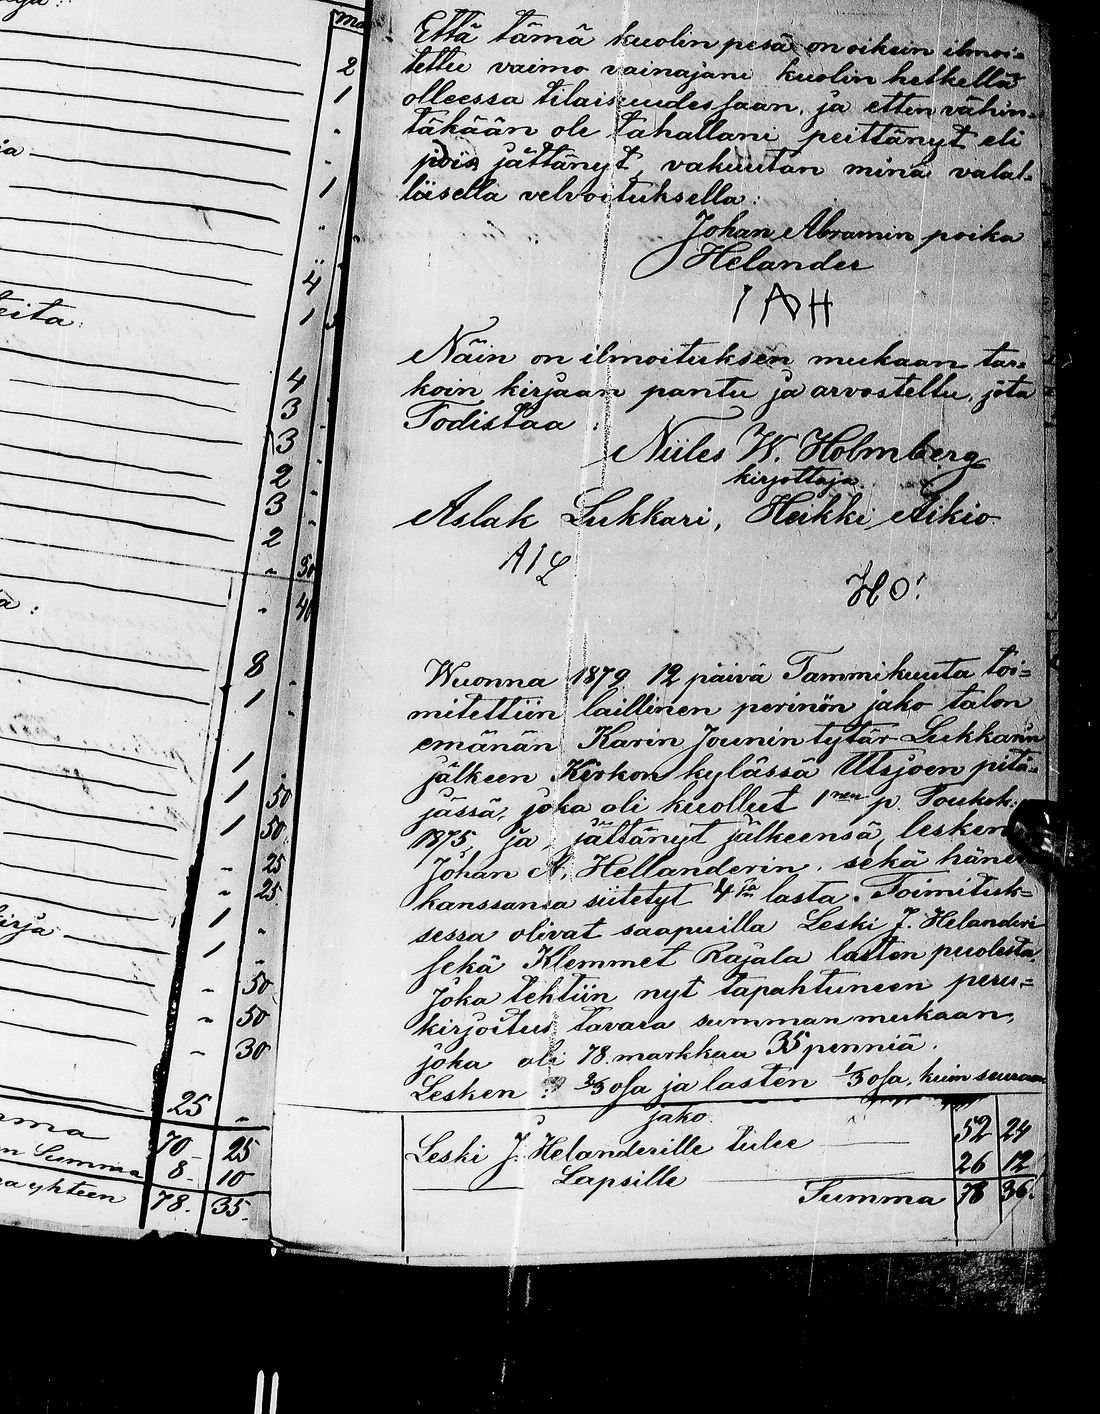 Ma
2
1
-
-
1
-
4
1
eita:
4
3
3
2
3
2
- 50
- 40
a:
8
1
1
1 50
1 50
- 25
- 25
irja 1 -
1 -
- 50
- 50
- 30
25 -
mma 70 25
n Summa 8 10
a yhteen 78. 35.
Että tämä kuolin pesä on oikein ilmoi=
tettu vaimo vainajani kuolin hetkellä
olleessa tilaisuudessaan, ja etten vähin=
täkään ole tahallani peittänyt eli
pois jättänyt, vakuutan minä valal=
läisella velvoituksella:
Johan Abramin poika
Helander
I A H
Näin on ilmoituksen mukaan tar=
koin kirjaan pantu ja arvosteltu, jota
Todistaa:
Niiles W. Holmberg
kirjottaja
Aslak Lukkari, Heikki Aikio
A I L
H O!
Wuonna 1879 12 päivä Tammikuuta toi=
mitettiin laillinen perinön jako talon
emänän Karin Jounin tytär Lukkarin
jälkeen Kirkon kylässä Utsjoen pitä=
jässä, joka oli kuollut 1nen p. Toukok:
1875, ja jättänyt jälkeensä, lesken
Johan A. Hellanderin, sekä hänen
kanssansa siitetyt 4 lasta. Toimituk=
sessa olivat saapuilla Leski J. Helanderi
sekä Klemmet Rajala lasten puolesta.
Joka tehtiin nyt tapahtuneen peru=
kirjoitus tavara summan mukaan,
joka oli 78 markkaa 35 penniä.
Lesken : 2/3 osa ja lasten 1/3 osa, kuin seuraa
jako.
Leski J. Helanderille tulee 52 24
Lapsille 26 12
Summa 78 36.